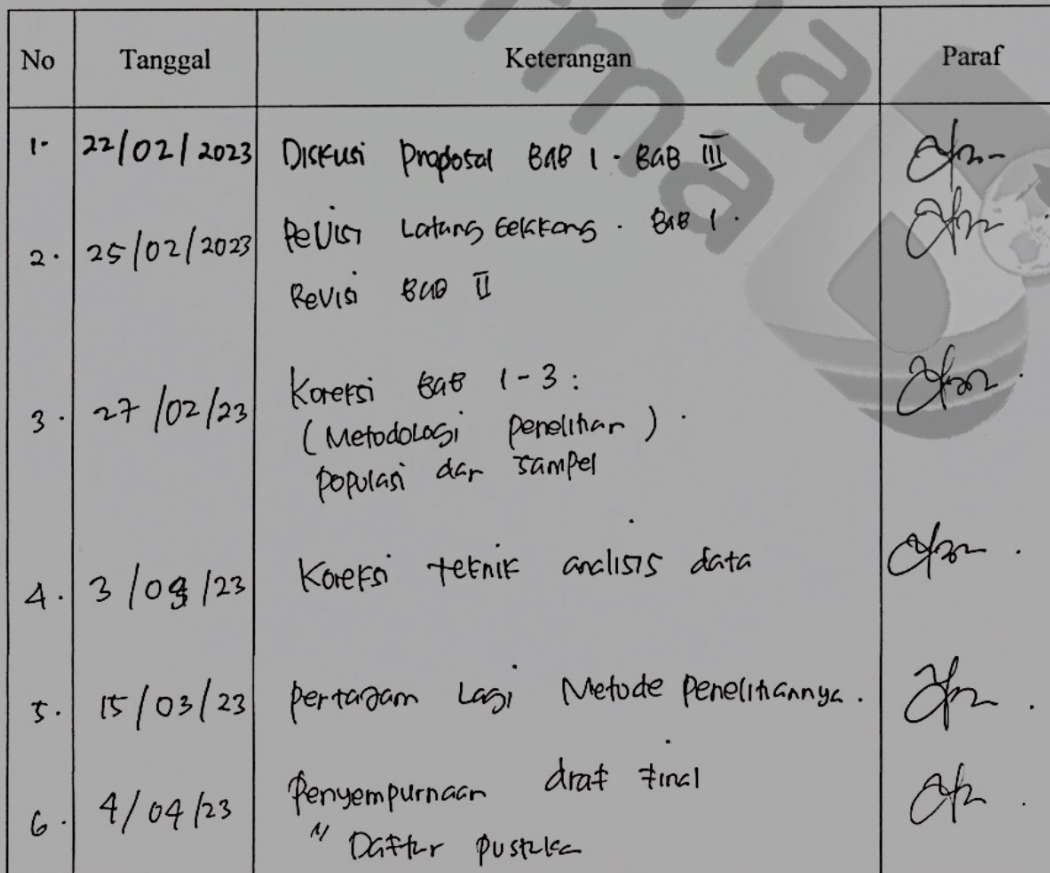 No Tanggal Keterangan Paraf
1. 22/02/2023 Diskusi Proposal BAB I - BAB III
2. 25/02/2023 Revisi Latang Belakang. BAB I.
Revisi BAB II
3. 27/02/23 Koreksi BAB 1-3:
(Metodologi Penelitian).
populasi dan sampel
4. 3/03/23 Koreksi teknik analisis data
5. 15/03/23 pertajam Lagi Metode Penelitiannya.
6. 4/04/23 Penyempurnaan draf final
" Daftar pustaka